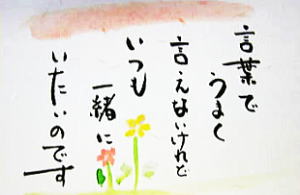 言葉で
うまく
言えないけれど
いつも
一緒に
いたいのです